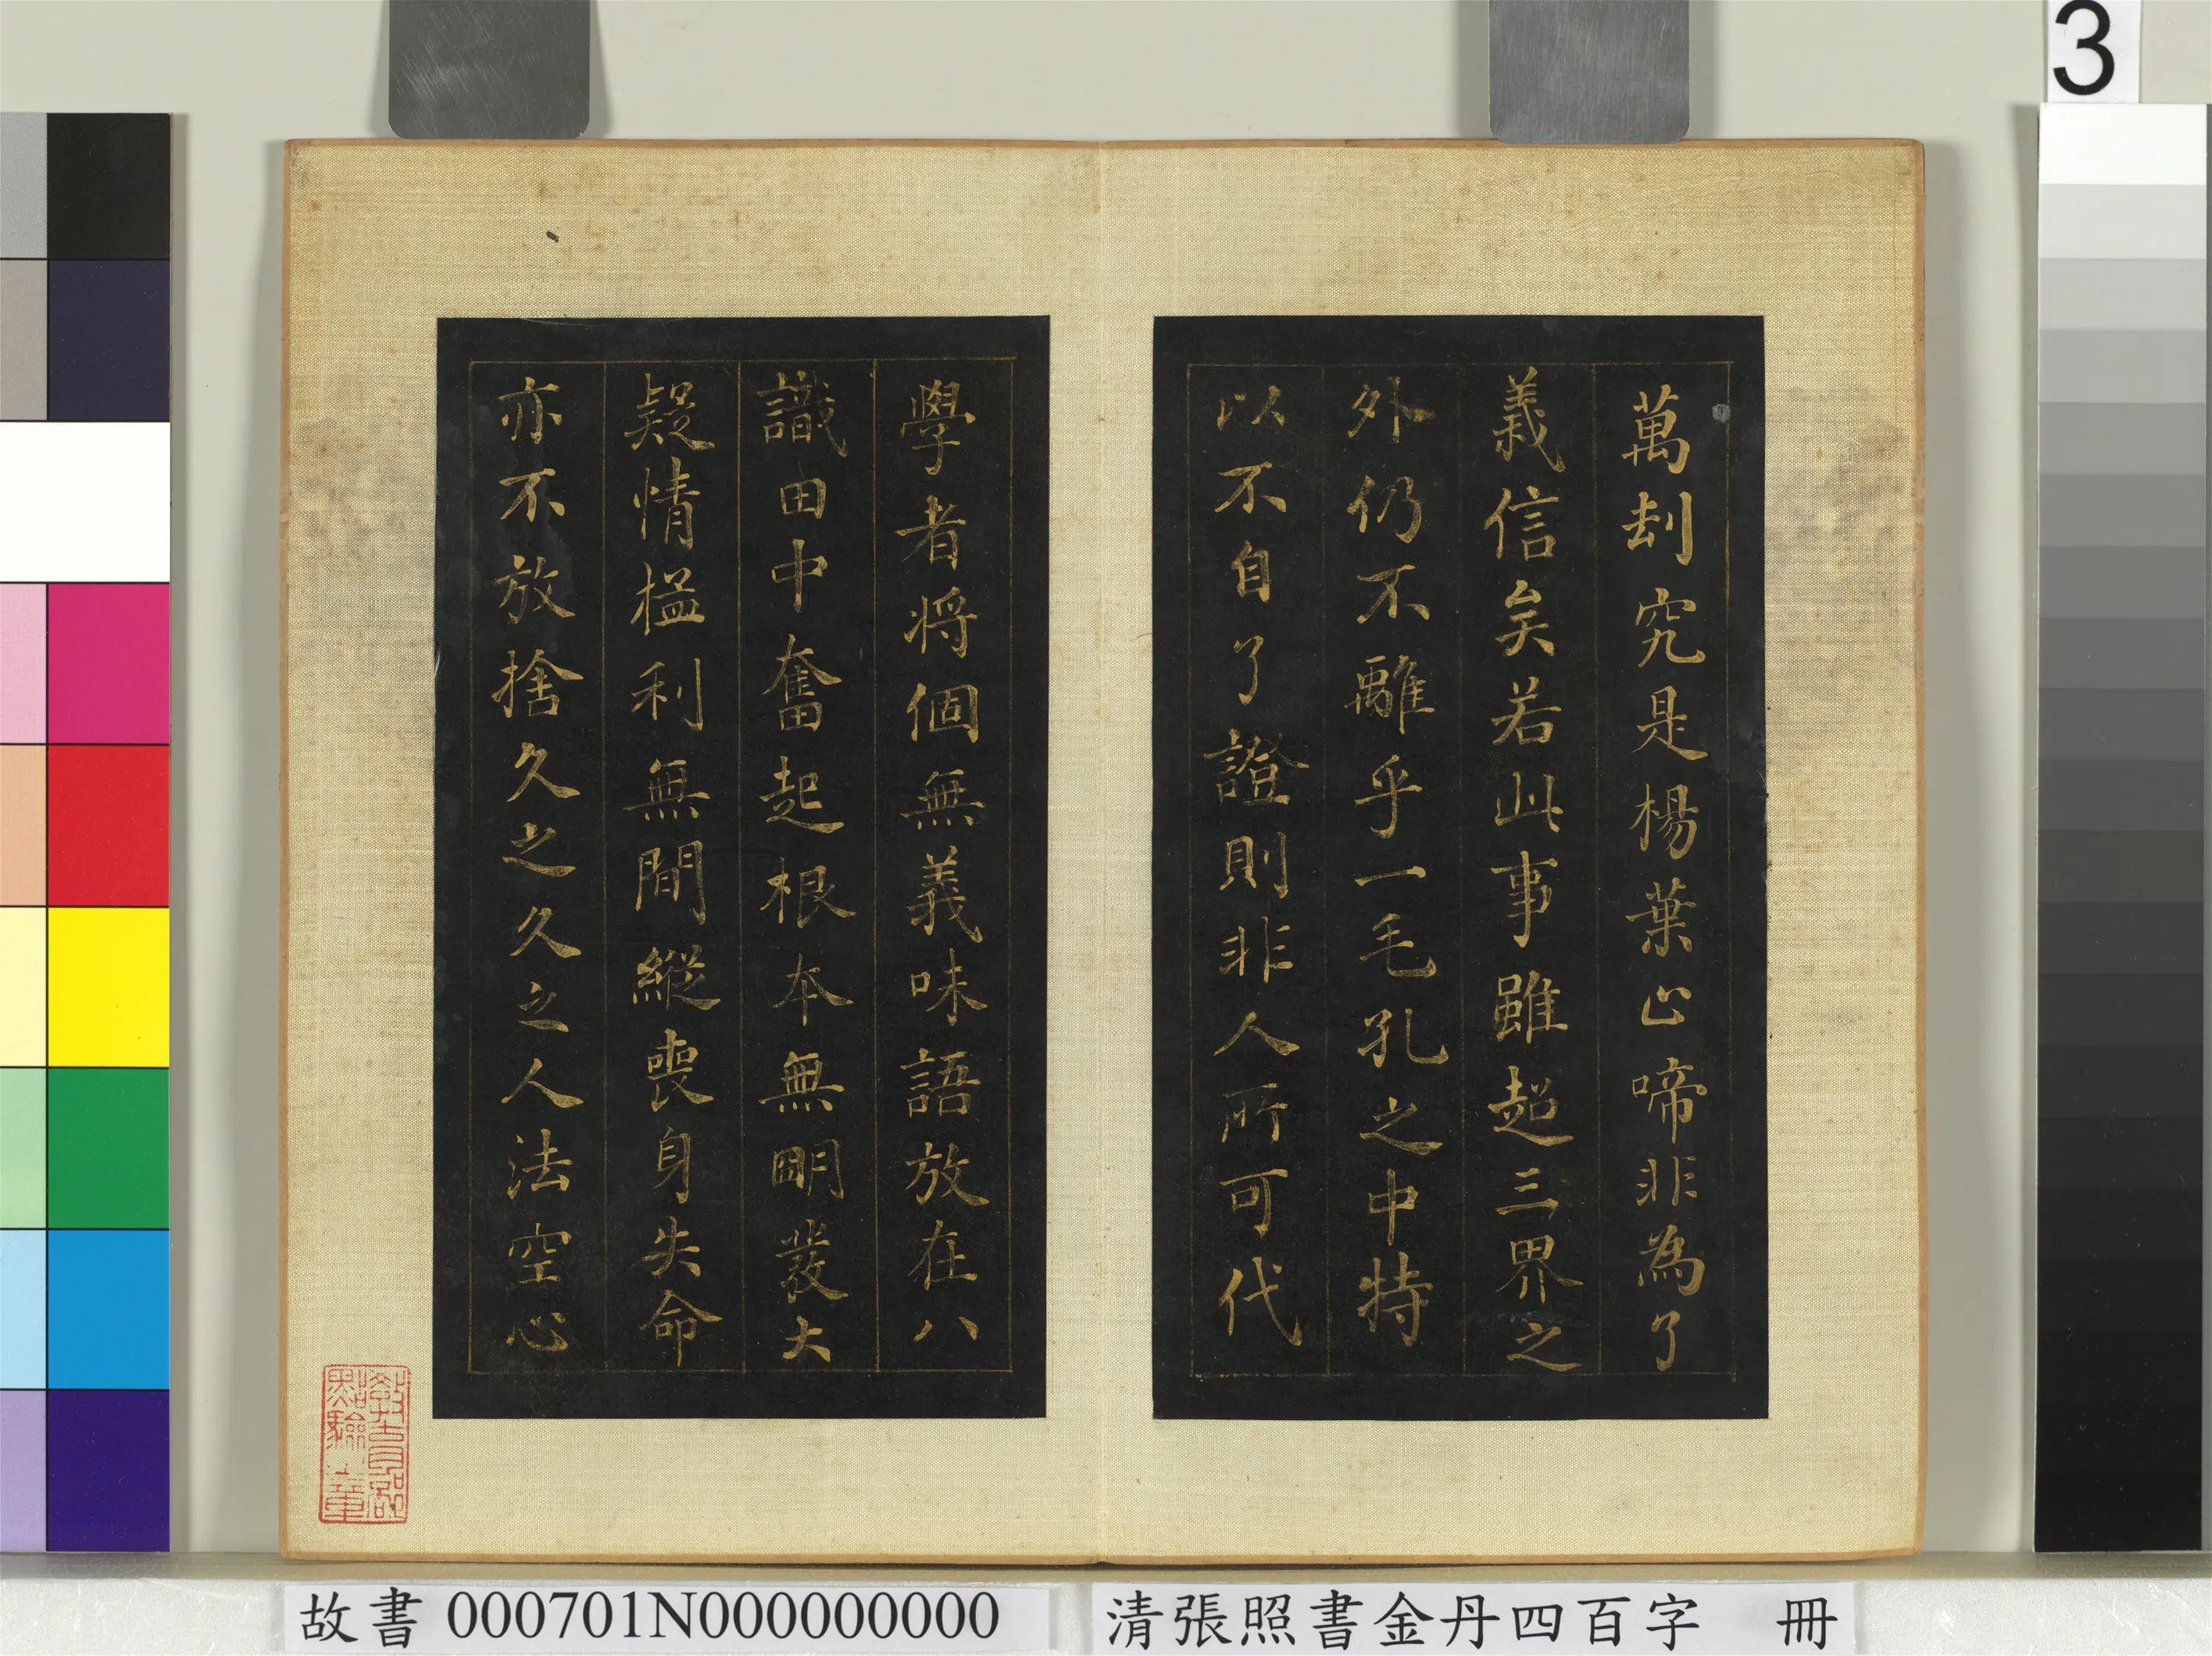 3
萬刦究是楊葉止啼非為了
義信矣若此事雖超三界之
外仍不離乎一毛孔之中特
以不自了證則非人所可代
學者將個無義味語放在八
識田中奮起根本無明發大
疑情猛利無間縱喪身失命
亦不放捨久之久之人法空心
教育部
點驗之章
故書 000701N000000000
清張照書金丹四百字 冊